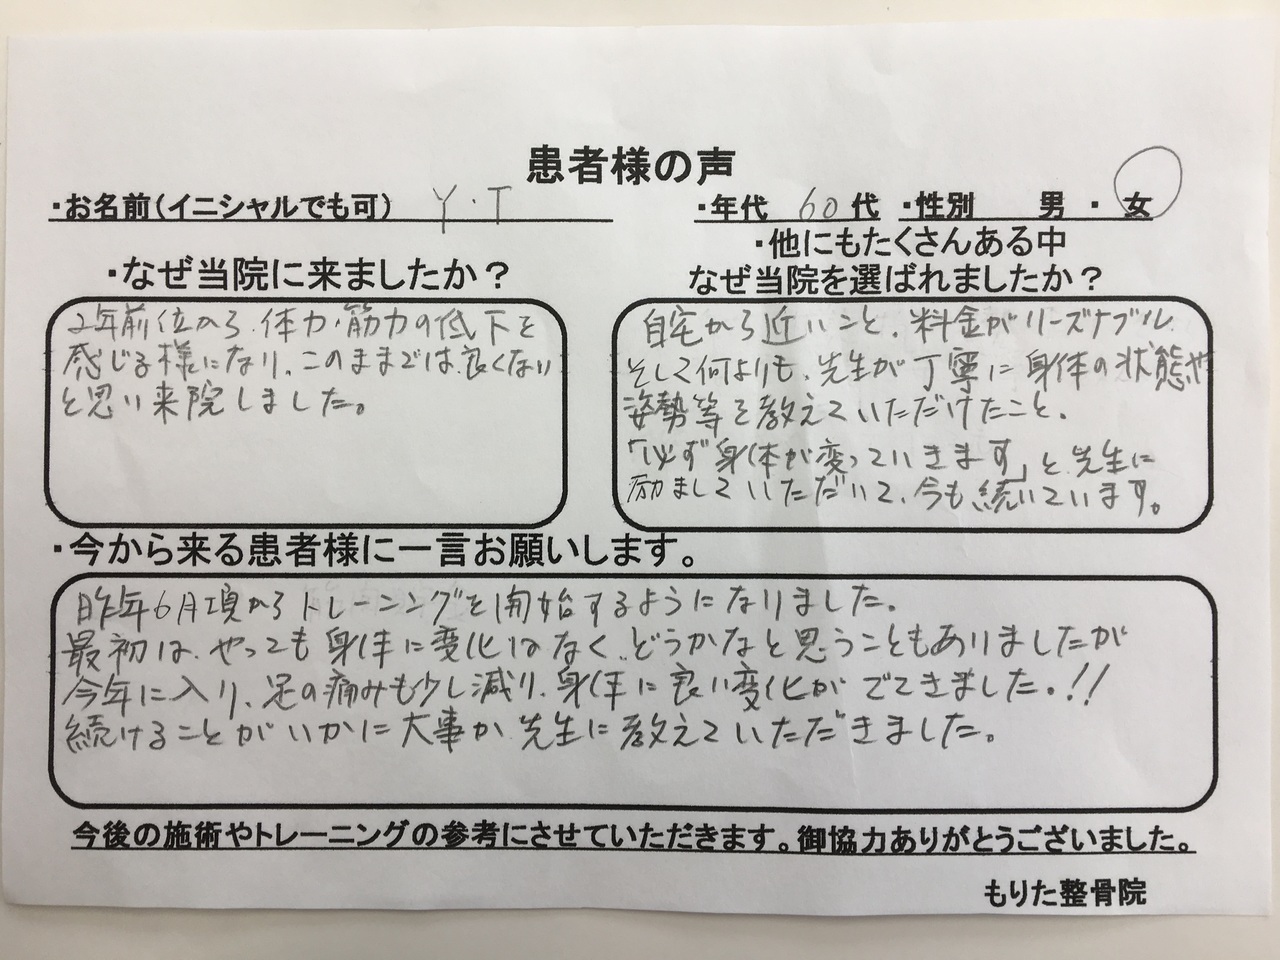 患者様の声
・お名前(イニシャルでも可) Y・T
・年代 60代 ・性別 男・女
・なぜ当院に来ましたか？
2年前位から、体力・筋力の低下を
感じる様になり、このままでは良くない
と思い来院しました。
・他にもたくさんある中
なぜ当院を選ばれましたか？
自宅から近いこと、料金がリーズナブル
そして何よりも、先生が丁寧に身体の状態や
姿勢等を教えていただけたこと、
「必ず身体が変っていきます」と先生に
励ましていただいて、今も続いています。
・今から来る患者様に一言お願いします。
昨年6月頃からトレーニングを開始するようになりました。
最初は、やっても身体に変化はなく、どうかなと思うこともありましたが
今年に入り、足の痛みも少し減り、身体に良い変化がでてきました。!!
続けることがいかに大事か先生に教えていただきました。
今後の施術やトレーニングの参考にさせていただきます。御協力ありがとうございました。
もりた整骨院